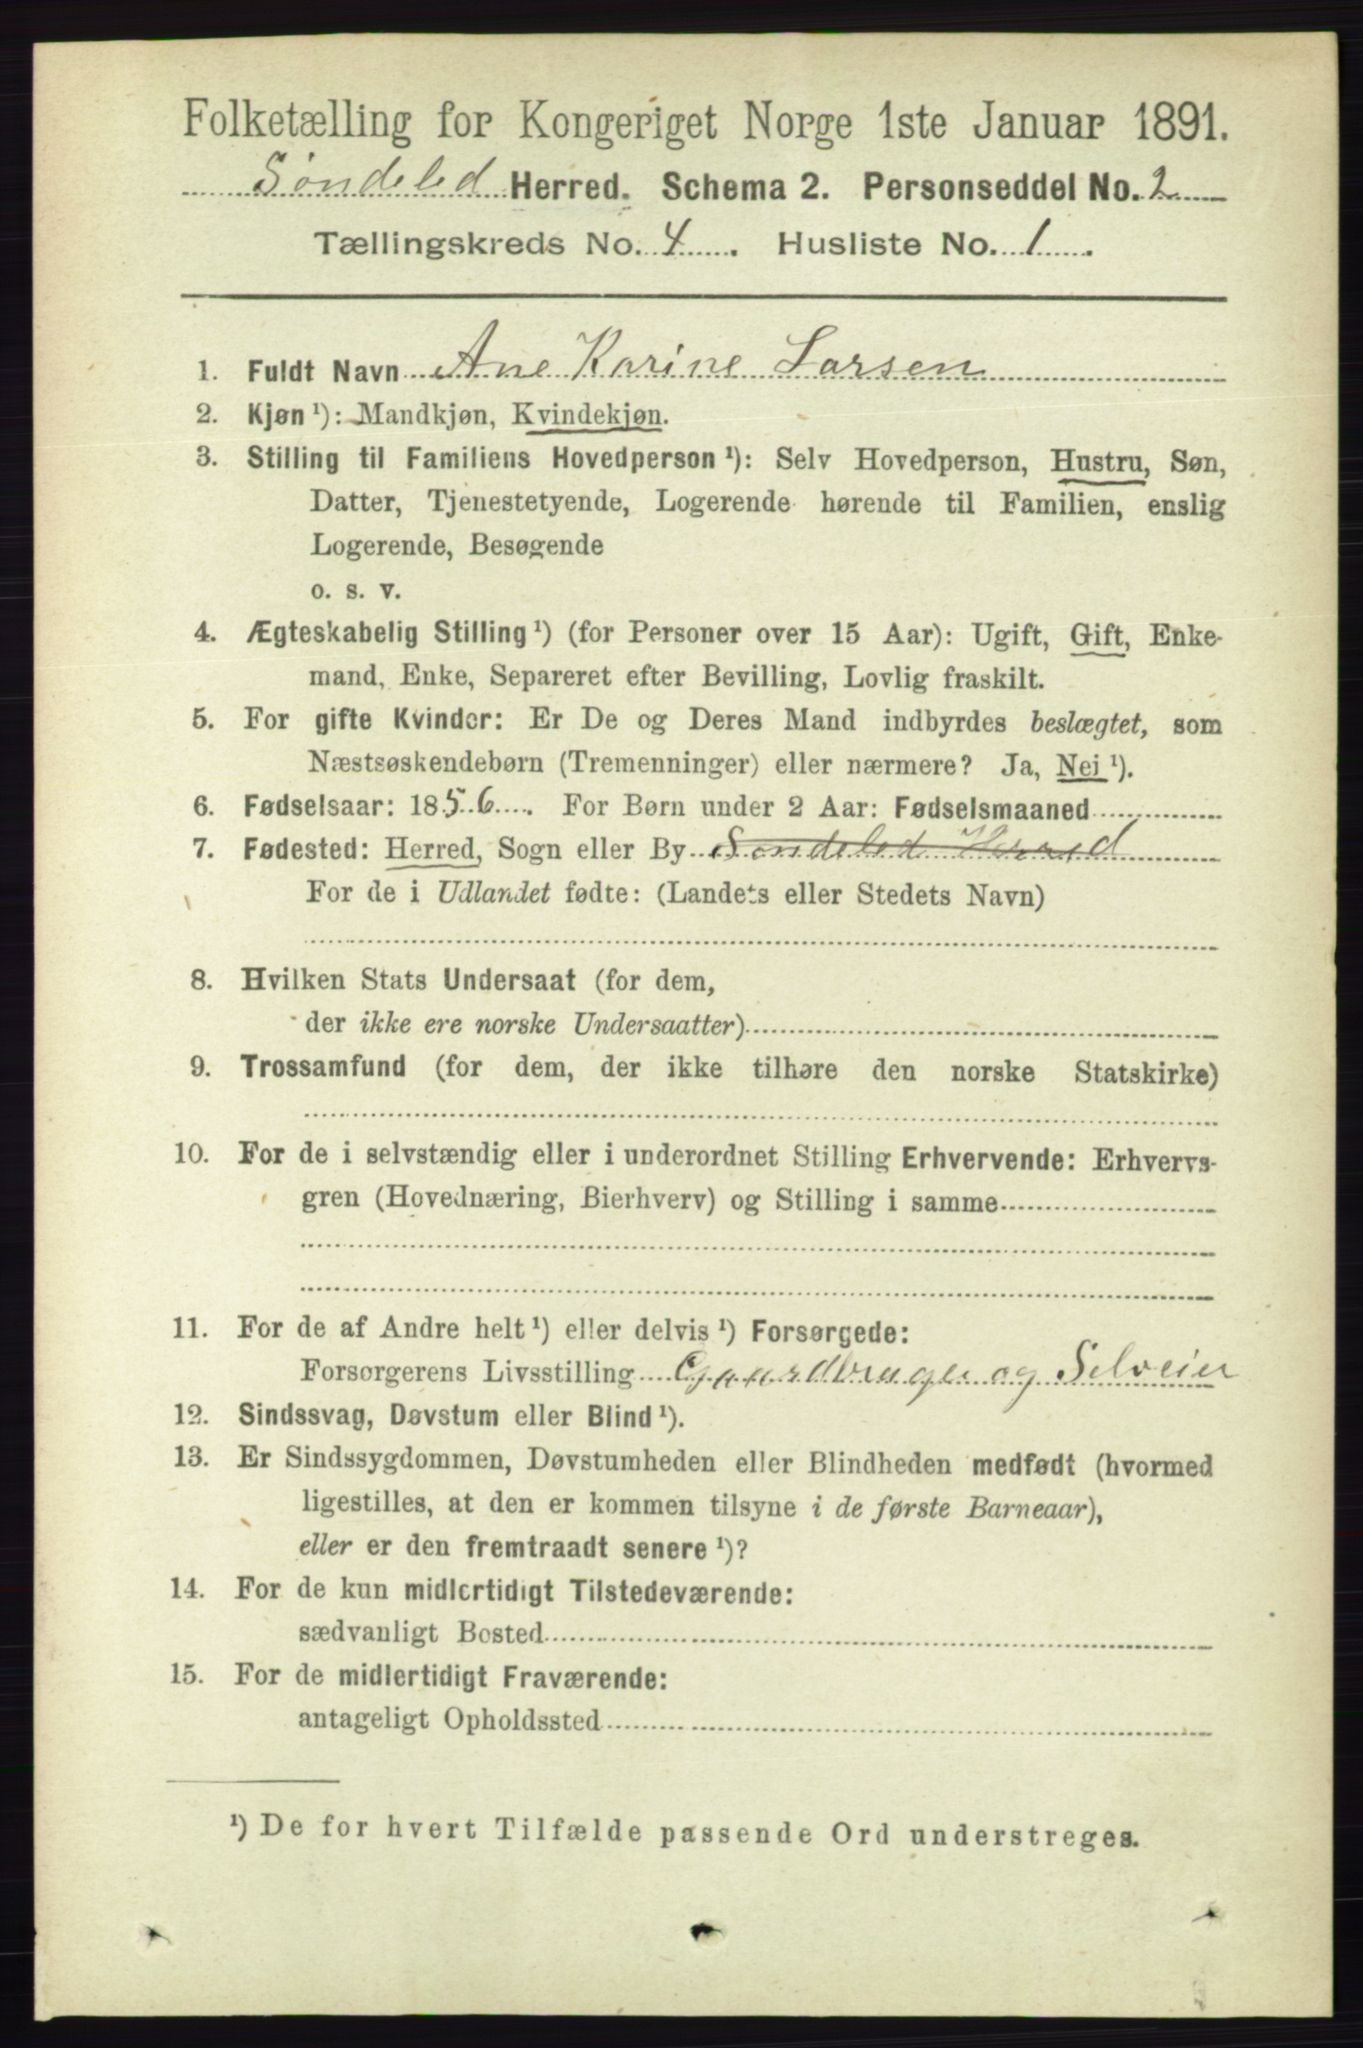 Folketælling for Kongeriget Norge 1ste Januar 1891.
Søndeled Herred. Schema 2. Personseddel No. 2
Tællingskreds No. 4. Husliste No. 1.
1. Fuldt Navn Ane Karine Larsen
2. Kjøn ¹): Mandkjøn, Kvindekjøn.
3. Stilling til Familiens Hovedperson ¹): Selv Hovedperson, Hustru, Søn,
Datter, Tjenestetyende, Logerende hørende til Familien, enslig
Logerende, Besøgende
o. s. v.
4. Ægteskabelig Stilling ¹) (for Personer over 15 Aar): Ugift, Gift, Enke-
mand, Enke, Separeret efter Bevilling, Lovlig fraskilt.
5. For gifte Kvinder: Er De og Deres Mand indbyrdes beslægtet, som
Næstsøskendebørn (Tremenninger) eller nærmere? Ja, Nei ¹).
6. Fødselsaar: 1856. For Børn under 2 Aar: Fødselsmaaned
7. Fødested: Herred, Sogn eller By Søndeled Herred
For de i Udlandet fødte: (Landets eller Stedets Navn)
8. Hvilken Stats Undersaat (for dem,
der ikke ere norske Undersaatter)
9. Trossamfund (for dem, der ikke tilhøre den norske Statskirke)
10. For de i selvstændig eller i underordnet Stilling Erhvervende: Erhvervs-
gren (Hovednæring, Bierhverv) og Stilling i samme
11. For de af Andre helt ¹) eller delvis ¹) Forsørgede:
Forsørgerens Livsstilling Gaardbruger og Selveier
12. Sindssvag, Døvstum eller Blind ¹).
13. Er Sindssygdommen, Døvstumheden eller Blindheden medfødt (hvormed
ligestilles, at den er kommen tilsyne i de første Barneaar),
eller er den fremtraadt senere ¹)?
14. For de kun midlertidigt Tilstedeværende:
sædvanligt Bosted
15. For de midlertidigt Fraværende:
antageligt Opholdssted
¹) De for hvert Tilfælde passende Ord understreges.